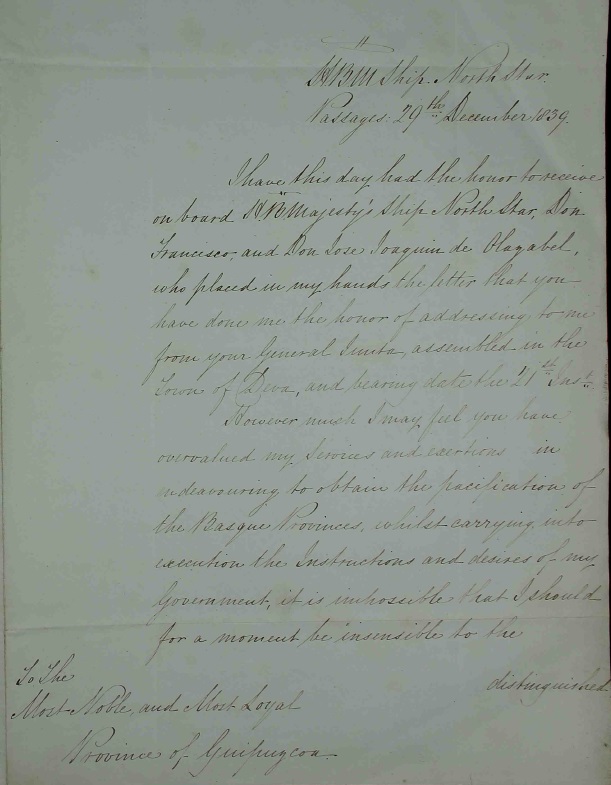 HBM Ship. North Star.
Passages: 29th December 1839.
I have this day had the honor to receive
on board H.B. Majesty's Ship North Star, Don
Francisco, and Don Jose Joaquin de Olazabel,
who placed in my hands the letter that you
have done me the honor of addressing to me
from your General Junta, assembled in the
Town of Deva, and bearing date the 21st Inst.
However much I may feel you have
overvalued my Services and exertions in
endeavouring to obtain the pacification of
the Basque Provinces, whilst carrying into
execution the Instructions and desires of my
Government, it is impossible that I should
for a moment be insensible to the
distinguished
To The
Most Noble, and Most Loyal
Province of Guipuzcoa.